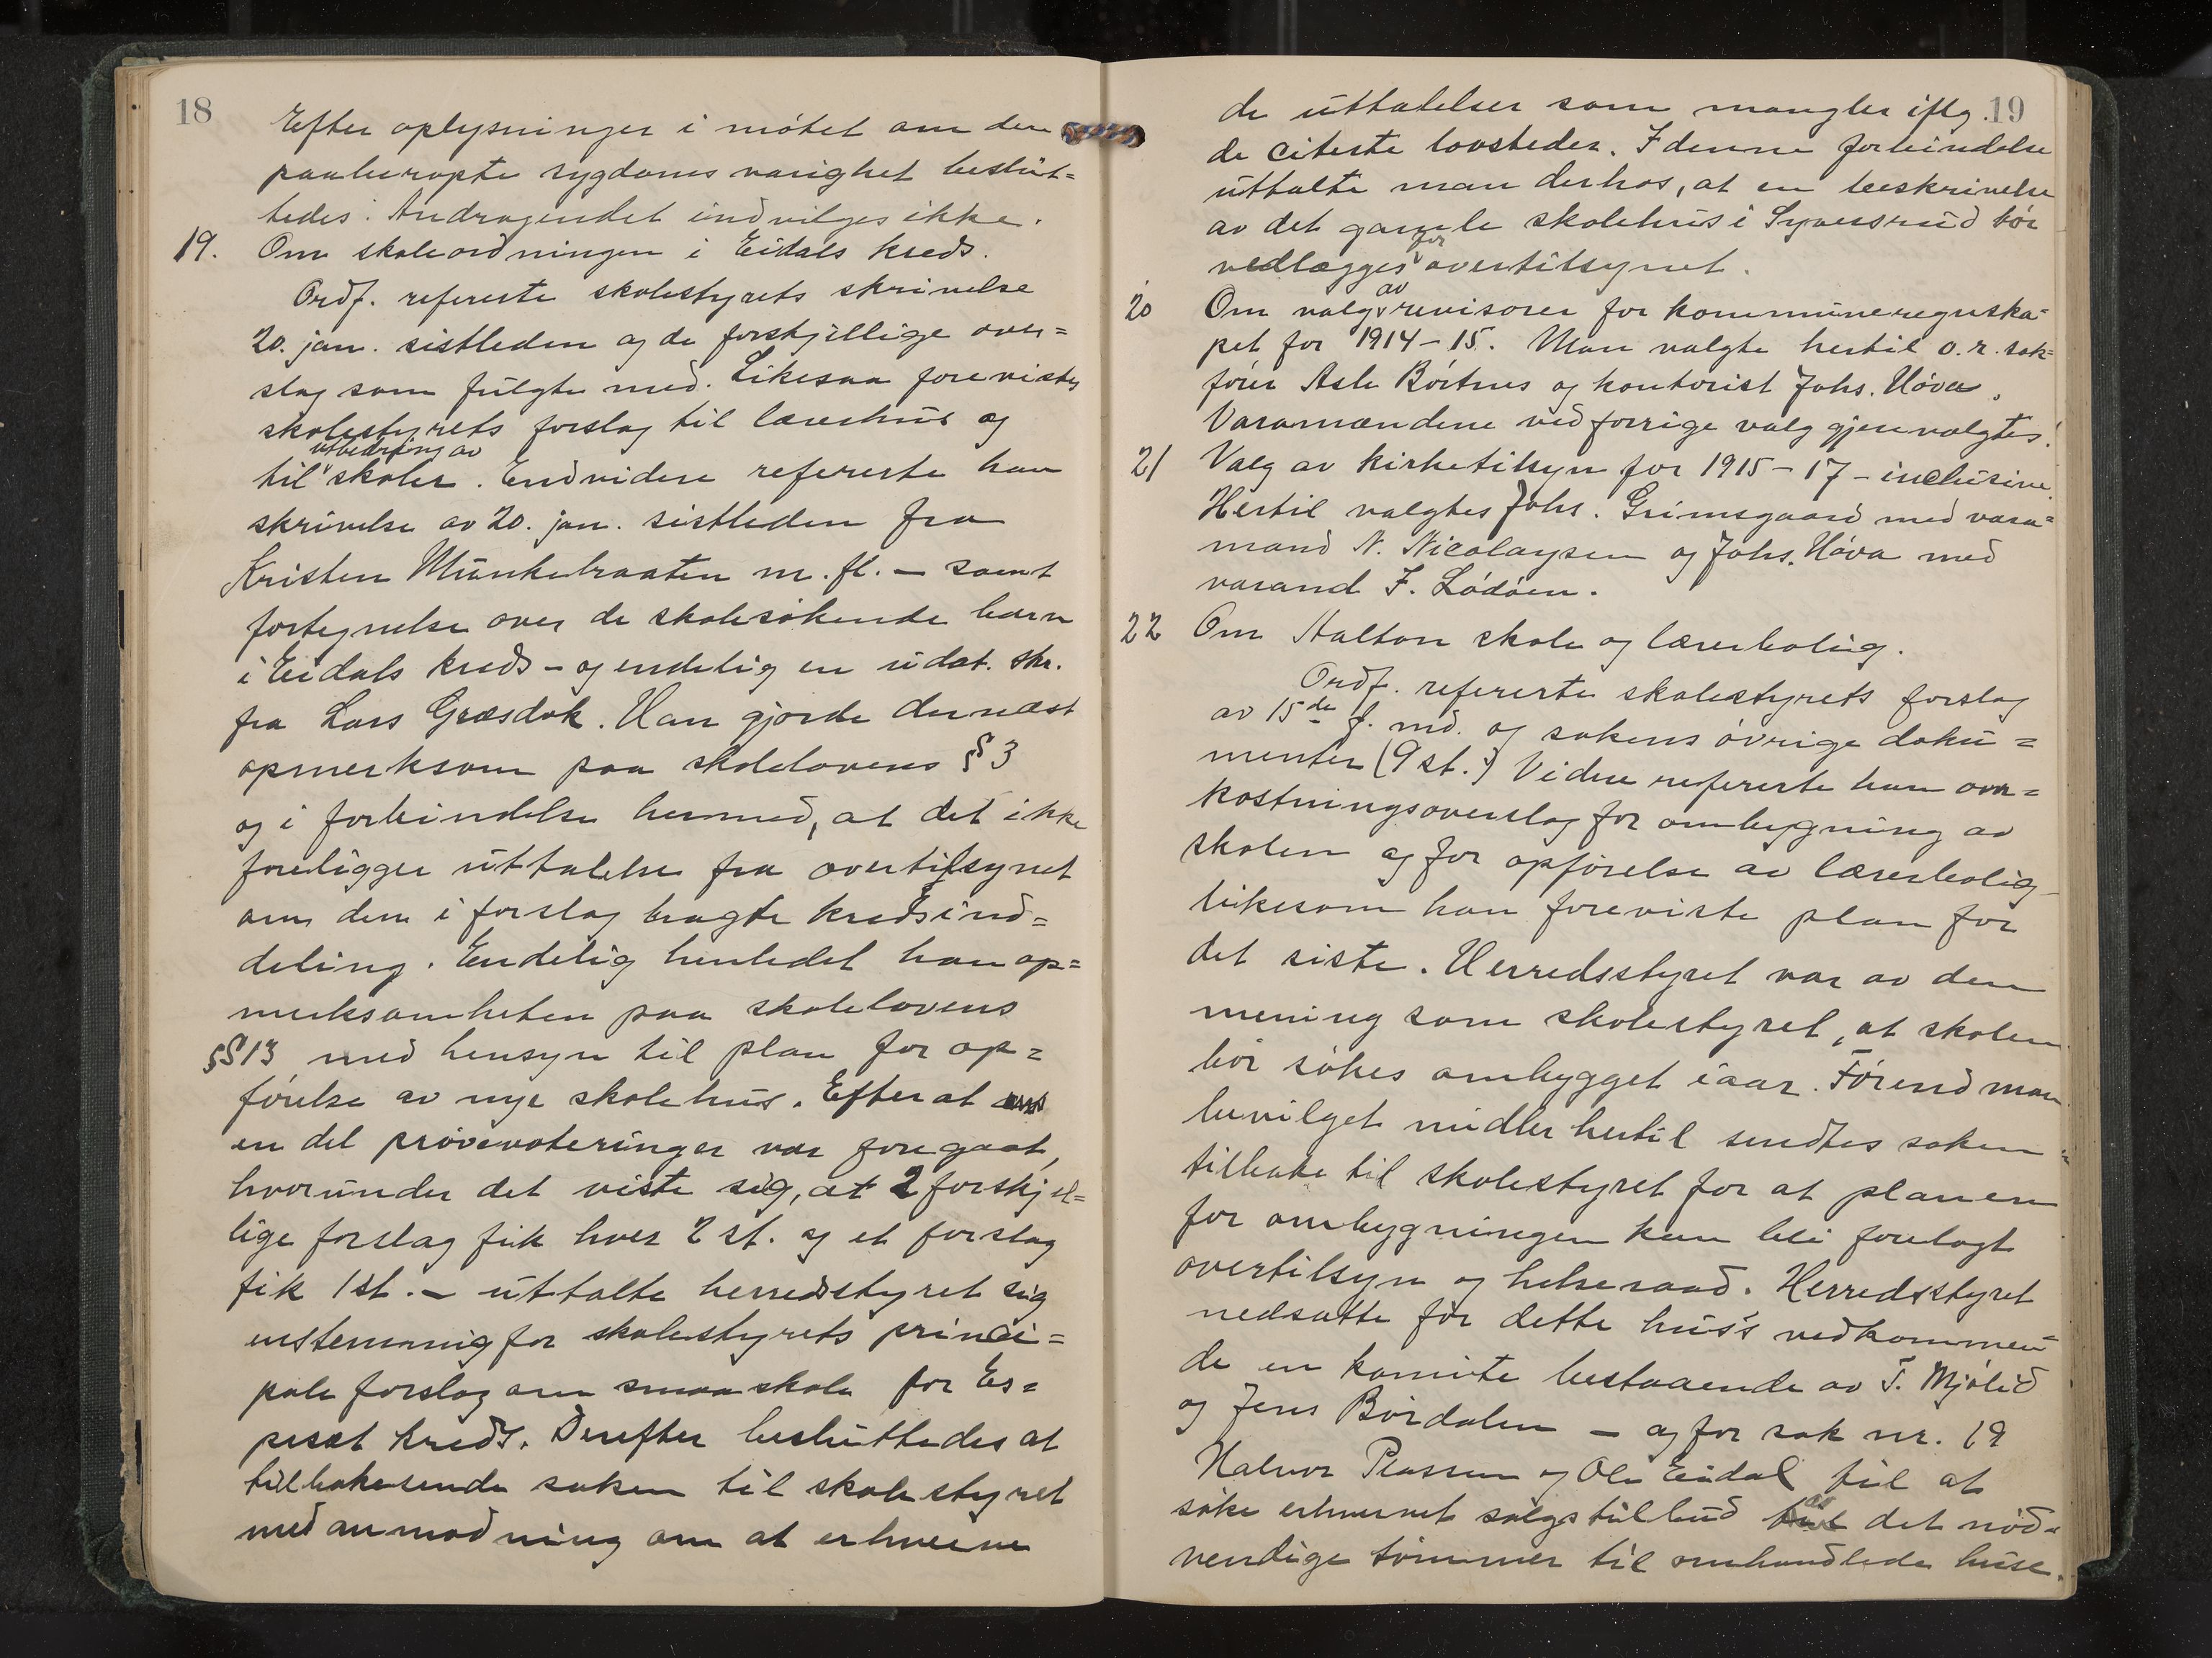 18
Efter oplysninger i møtet om den
paaberopte sygdoms varighet beslut=
tedes: Andragendet indvilges ikke.
19. Om skoleordningen i Eidals kreds.
Ordf. refererte skolestyrets skrivelse
20. jan. sistleden og de forskjellige over=
slag som fulgte med. Likesaa forevistes
skolestyrets forslag til lærerhus og
utbedring av
til skoler. Endvidere refererte han
skrivelse av 20. jan. sistleden fra
Kristen Munkebraaten m. fl. – samt
fortegnelse over de skolesøkende barn
i Eidals kreds – og endelig en udat. skr.
fra Lars Græsdok. Han gjorde dernæst
opmerksom paa skolelovens § 3
og i forbindelse hermed, at det ikke
foreligger uttalelse fra overtilsynet
om den i forslag bragte kredsind=
deling. Endelig henledet han op=
merksomheten paa skolelovens
§§ 13 med hensyn til plan for op=
førelse av nye skolehus. Efter at
en del prøvevoteringer var foregaat,
hvorunder det viste sig, at 2 forskjel=
lige forslag fik hver 2 st. og et forslag
fik 1 st. – uttalte herredsstyret sig
enstemmig for skolestyrets princi=
pale forslag om smaaskole for Es=
peset kreds. Derefter besluttedes at
tilbakesende saken til skolestyret
med anmodning om at erhverve
19
de uttalelser som mangler iflg.
de citerte lovsteder. I denne forbindelse
uttalte man derhos, at en beskrivelse
av det gamle skolehus i Syversrud bør
for
vedlægges overtilsynet.
av
20 Om valg revisorer for kommuneregnska=
pet for 1914–15. Man valgte hertil o.r. sak=
fører Asle Børtnes og kontorist Johs. Hova.
Varamændene ved forrige valg gjenvalgtes.
21 Valg av kirketilsyn for 1915–17 – inclusive.
Hertil valgtes Johs. Grimsgaard med vara=
mand N. Nicolaysen og Johs. Hova med
varand F. Lødøen.
22 Om Halton skole og lærerbolig.
Ordf. refererte skolestyrets forslag
av 15de f. md. og sakens øvrige doku=
menter (9 st.) Videre refererte han om=
kostningsoverslag for ombygning av
skolen og for opførelse av lærerbolig –
likesom han foreviste plan for
det siste. Herredsstyret var av den
mening som skolestyret, at skolen
bør søkes ombygget iaar. Førend man
bevilget midler hertil sendtes saken
tilbake til skolestyret for at planen
for ombyggningen kan bli forelagt
overtilsyn og helseraad. Herredsstyret
nedsatte for dette hus's vedkommen=
de en komite bestaaende av T. Mjølid
og Jens Børdalen – og for sak nr. 19
Halvor Plassen og Ole Eidal til at
av
søke erhvervet salgstilbud det nød=
vendige tømmer til omhandlede huse.